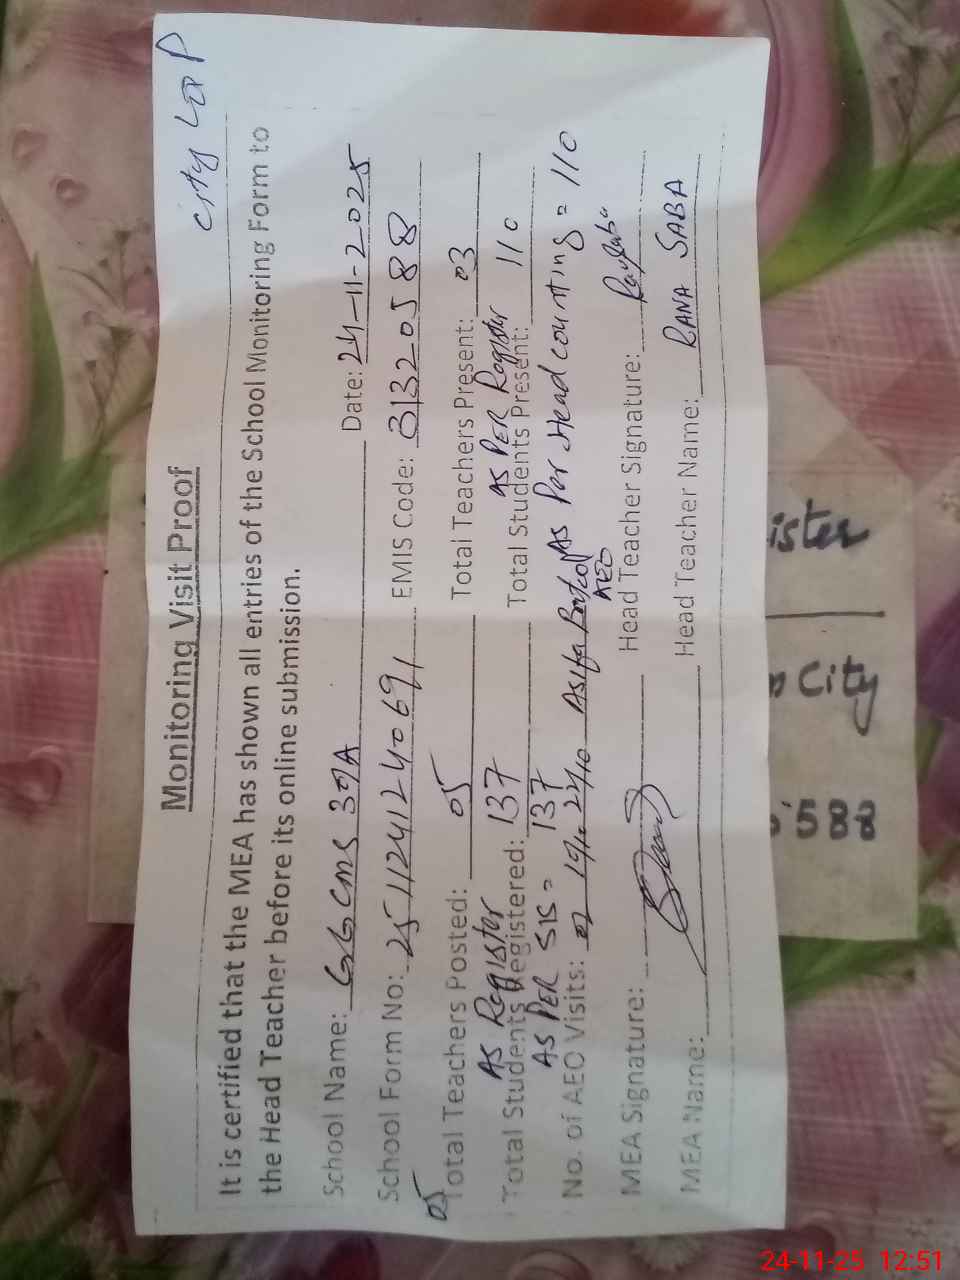 City LOP
Monitoring Visit Proof
It is certified that the MEA has shown all entries of the School Monitoring Form to
the Head Teacher before its online submission.
School Name: GGCMS 30/A Date: 24-11-2025
School Form No: 2511241240691 EMIS Code: 31320588
05
Total Teachers Posted: 05 Total Teachers Present: 03
As Register AS PER Register
Total Students Registered: 137 Total Students Present: 110
AS PER SIS = 137 As Per Head counting = 110
No. of AEO Visits: 02 Asifa AEO
MEA Signature: Head Teacher Signature:
MEA Name: Head Teacher Name: RANA SABA
ister
City
588
24-11-25 12:51